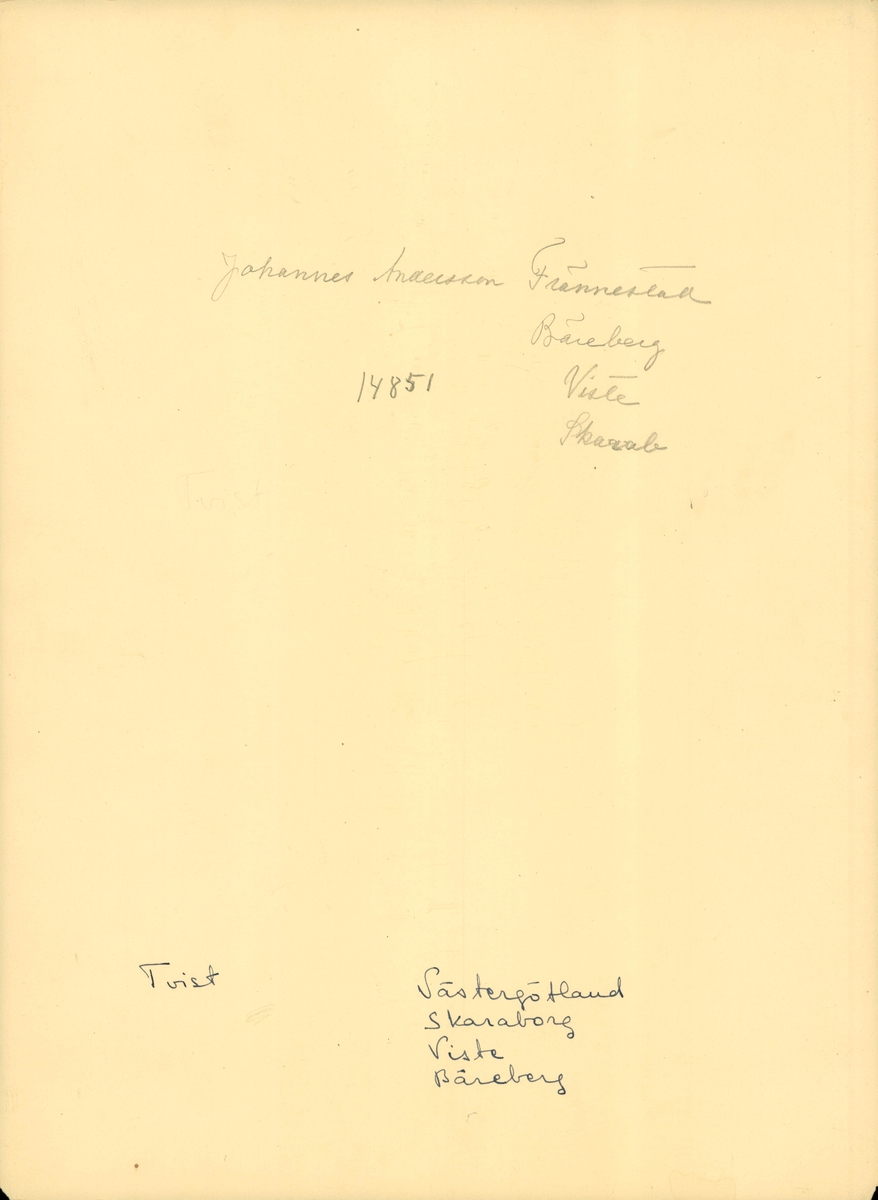 Johannes Andersson Frännestad
Bäreberg
14851 Viste
Skarab
Tvist
Tvist
Västergötland
Skaraborg
Viste
Bäreberg